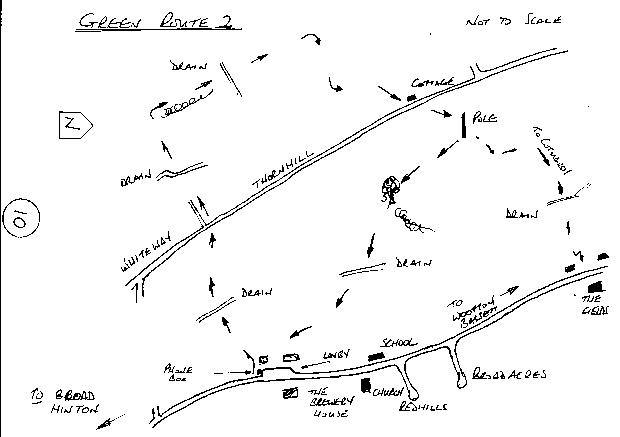 GREEN ROUTE 2
NOT TO SCALE
DRAIN
COTTAGE
N
POLE
TO COTSWOLD
DRAIN
THORNHILL
10
DRAIN
WHITEWAY
DRAIN
DRAIN
TO
WOOTTON
BASSETT
THE
FIELDS
SCHOOL
LAYBY
PHONE
BOX
BROAD ACRES
TO BROAD
HINTON
THE
BREWERY
HOUSE
CHURCH
REDHILLS